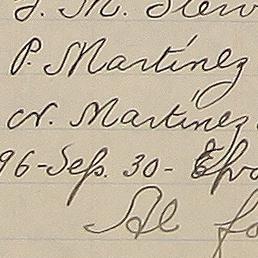 J. M. Stew
P. Martínez
N. Martínez
96-Sep. 30-
Al